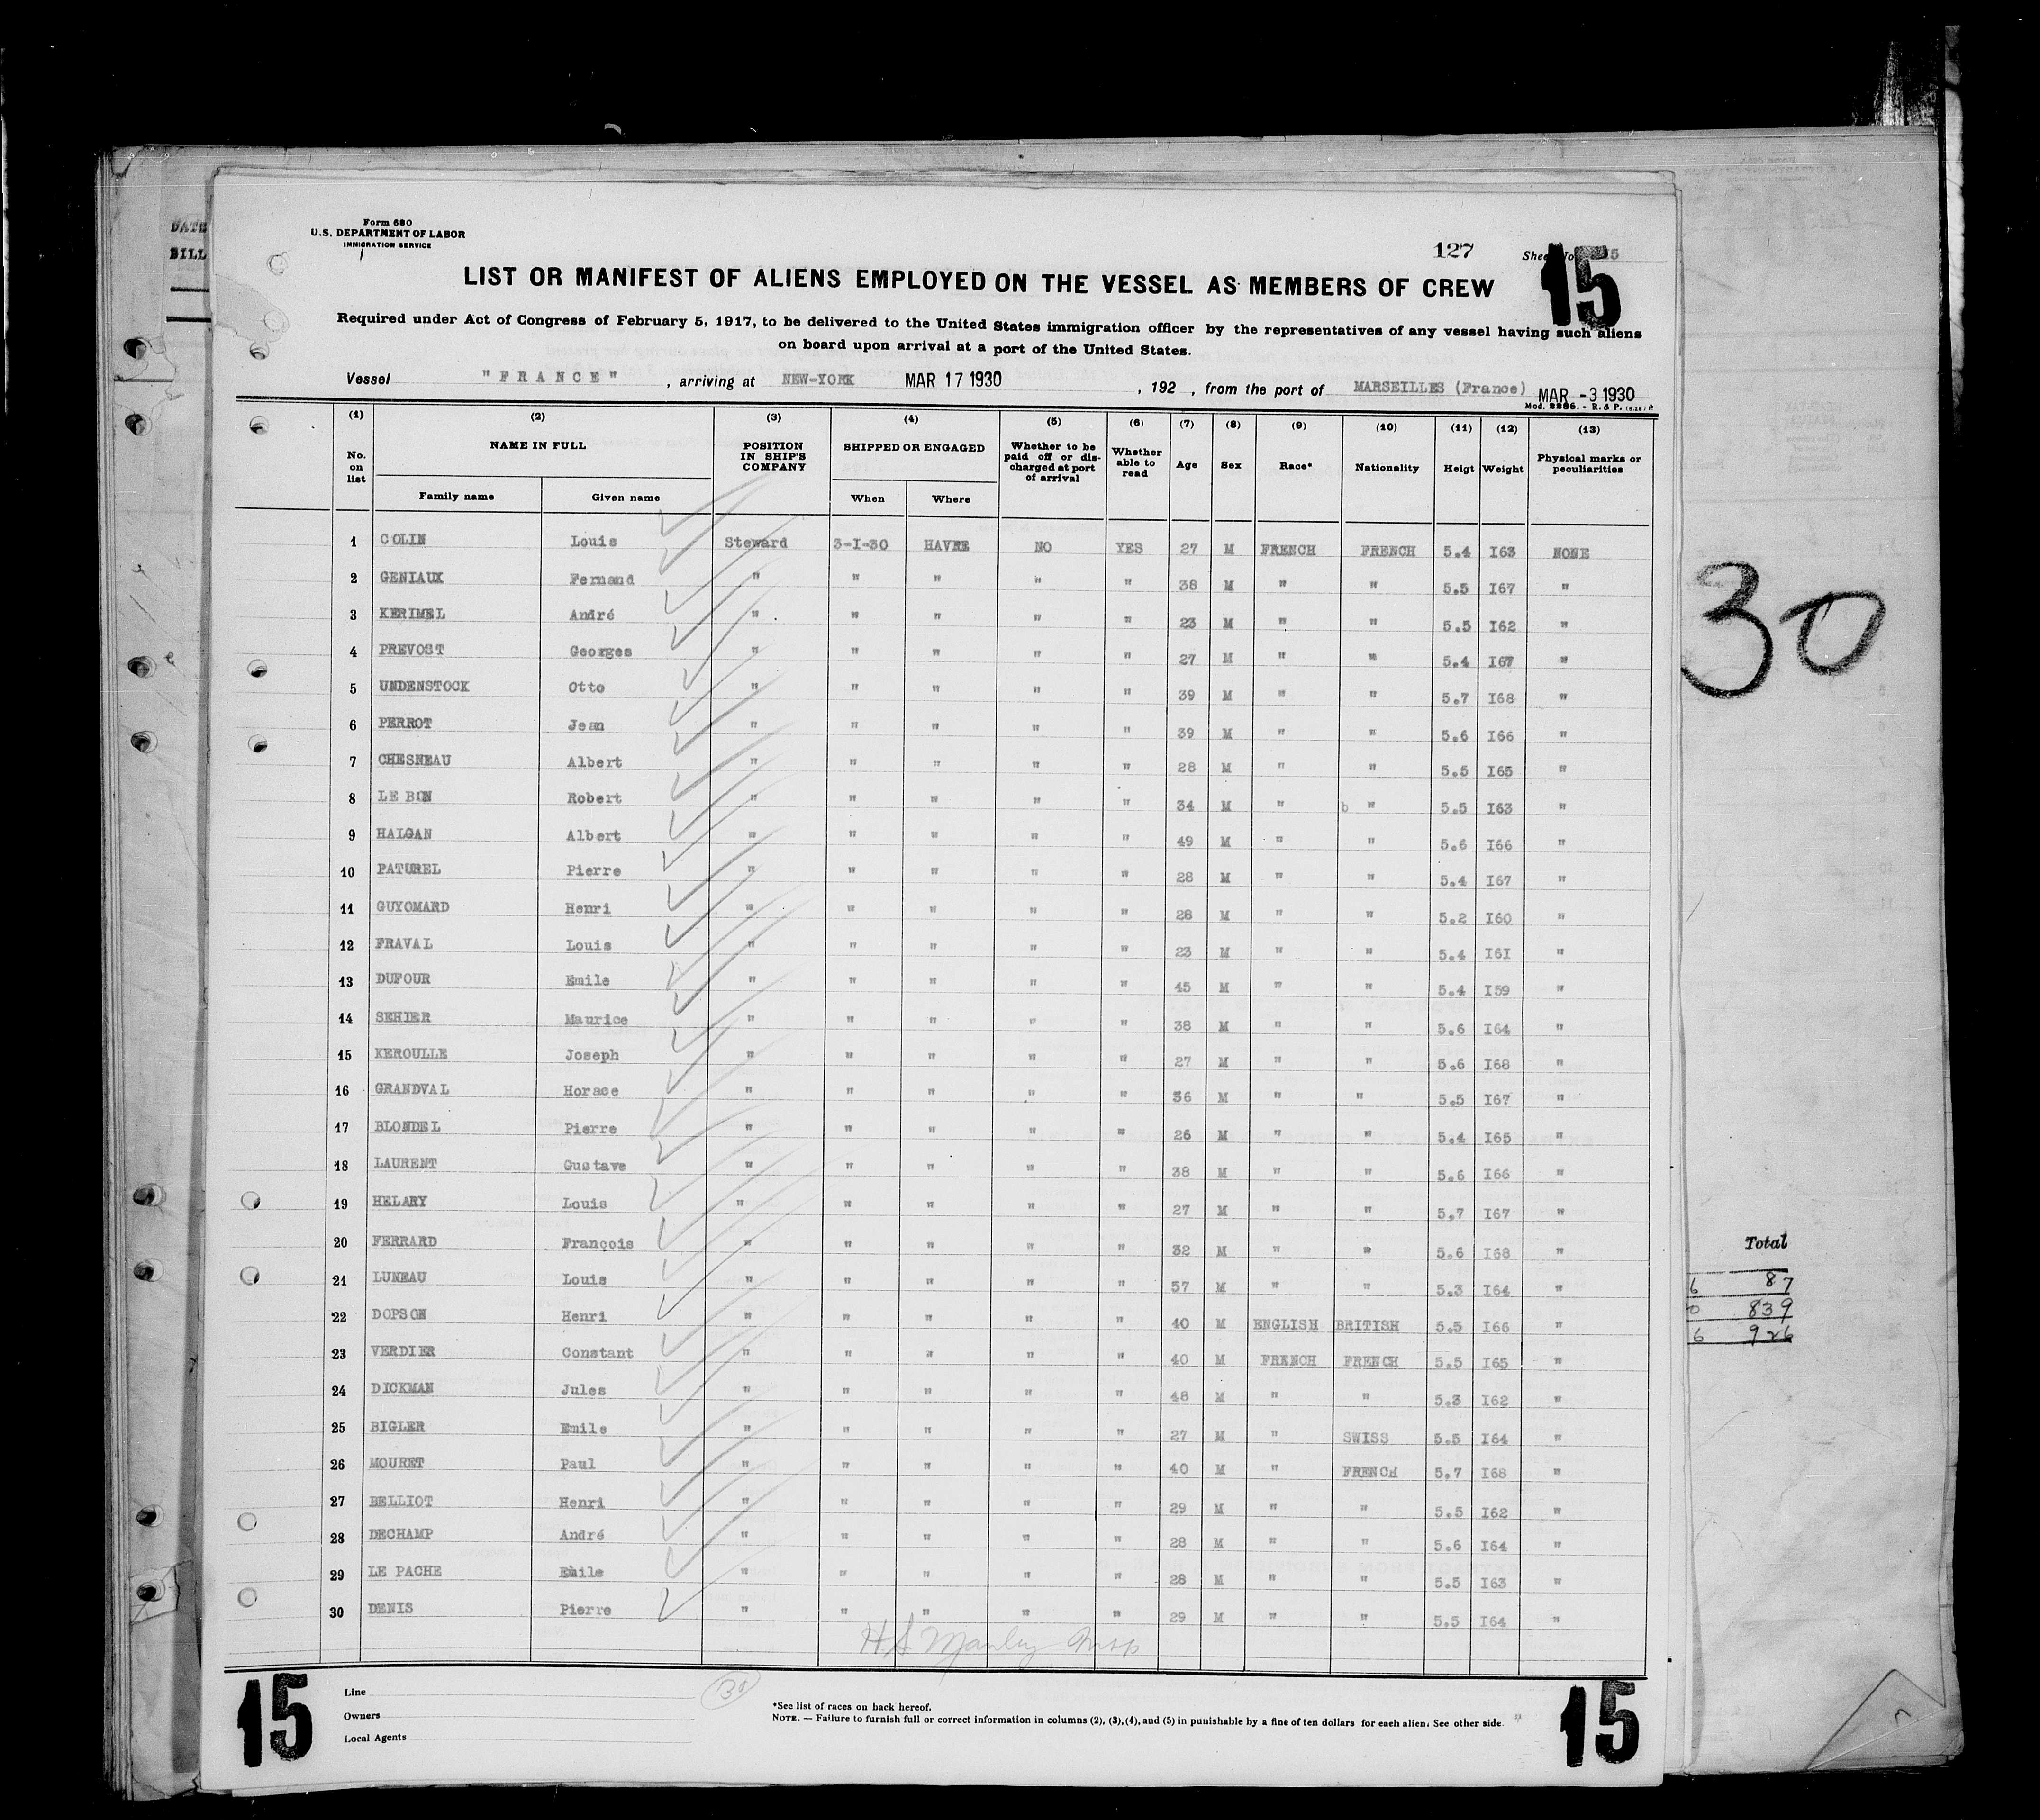 DATE
BILL
Form 680
U.S. DEPARTMENT OF LABOR
IMMIGRATION SERVICE
127
Sheet No. 15
15
LIST OR MANIFEST OF ALIENS EMPLOYED ON THE VESSEL AS MEMBERS OF CREW
Required under Act of Congress of February 5, 1917, to be delivered to the United States immigration officer by the representatives of any vessel having such aliens
on board upon arrival at a port of the United States.
Vessel "FRANCE", arriving at NEW-YORK MAR 17 1930, 192 , from the port of MARSEILLES (France) MAR -3 1930
Mod. 2286. - R. & P.
(1) (2) (3) (4) (5) (6) (7) (8) (9) (10) (11) (12) (13)
No. on list NAME IN FULL POSITION IN SHIP'S COMPANY SHIPPED OR ENGAGED Whether to be paid off or discharged at port of arrival Whether able to read Age Sex Race* Nationality Heigt Weight Physical marks or peculiarities
Family name Given name When Where
1 COLIN Louis Steward 3-I-30 HAVRE NO YES 27 M FRENCH FRENCH 5.4 I63 NONE
2 GENIAUX Fernand " " " " " 38 M " " 5.5 I67 "
3 KERIMEL André " " " " " 23 M " " 5.5 I62 "
4 PREVOST Georges " " " " " 27 M " " 5.4 I67 "
5 UNDENSTOCK Otto " " " " " 39 M " " 5.7 I68 "
6 PERROT Jean " " " " " 39 M " " 5.6 I66 "
7 CHESNEAU Albert " " " " " 28 M " " 5.5 I65 "
8 LE BON Robert " " " " " 34 M " b " 5.5 I63 "
9 HALGAN Albert " " " " " 49 M " " 5.6 I66 "
10 PATUREL Pierre " " " " " 28 M " " 5.4 I67 "
11 GUYOMARD Henri " " " " " 28 M " " 5.2 I60 "
12 FRAVAL Louis " " " " " 23 M " " 5.4 I6I "
13 DUFOUR Emile " " " " " 45 M " " 5.4 I59 "
14 SEHIER Maurice " " " " " 38 M " " 5.6 I64 "
15 KEROULLE Joseph " " " " " 27 M " " 5.6 I68 "
16 GRANDVAL Horace " " " " " 36 M " " 5.5 I67 "
17 BLONDEL Pierre " " " " " 26 M " " 5.4 I65 "
18 LAURENT Gustave " " " " " 38 M " " 5.6 I66 "
19 HELARY Louis " " " " " 27 M " " 5.7 I67 "
20 FERRARD François " " " " " 32 M " " 5.6 I68 "
21 LUNEAU Louis " " " " " 57 M " " 5.3 I64 "
22 DOPSON Henri " " " " " 40 M ENGLISH BRITISH 5.5 I66 "
23 VERDIER Constant " " " " " 40 M FRENCH FRENCH 5.5 I65 "
24 DICKMAN Jules " " " " " 48 M " " 5.3 I62 "
25 BIGLER Emile " " " " " 27 M " SWISS 5.5 I64 "
26 MOURET Paul " " " " " 40 M " FRENCH 5.7 I68 "
27 BELLIOT Henri " " " " " 29 M " " 5.5 I62 "
28 DECHAMP André " " " " " 28 M " " 5.6 I64 "
29 LE PACHE Emile " " " " " 28 M " " 5.5 I63 "
30 DENIS Pierre " " " " " 29 M " " 5.5 I64 "
H S Manley Insp
30
Total
6 87
0 839
6 926
15
Line
Owners
Local Agents
30
*See list of races on back hereof.
NOTE. — Failure to furnish full or correct information in columns (2), (3), (4), and (5) in punishable by a fine of ten dollars for each alien. See other side.
15